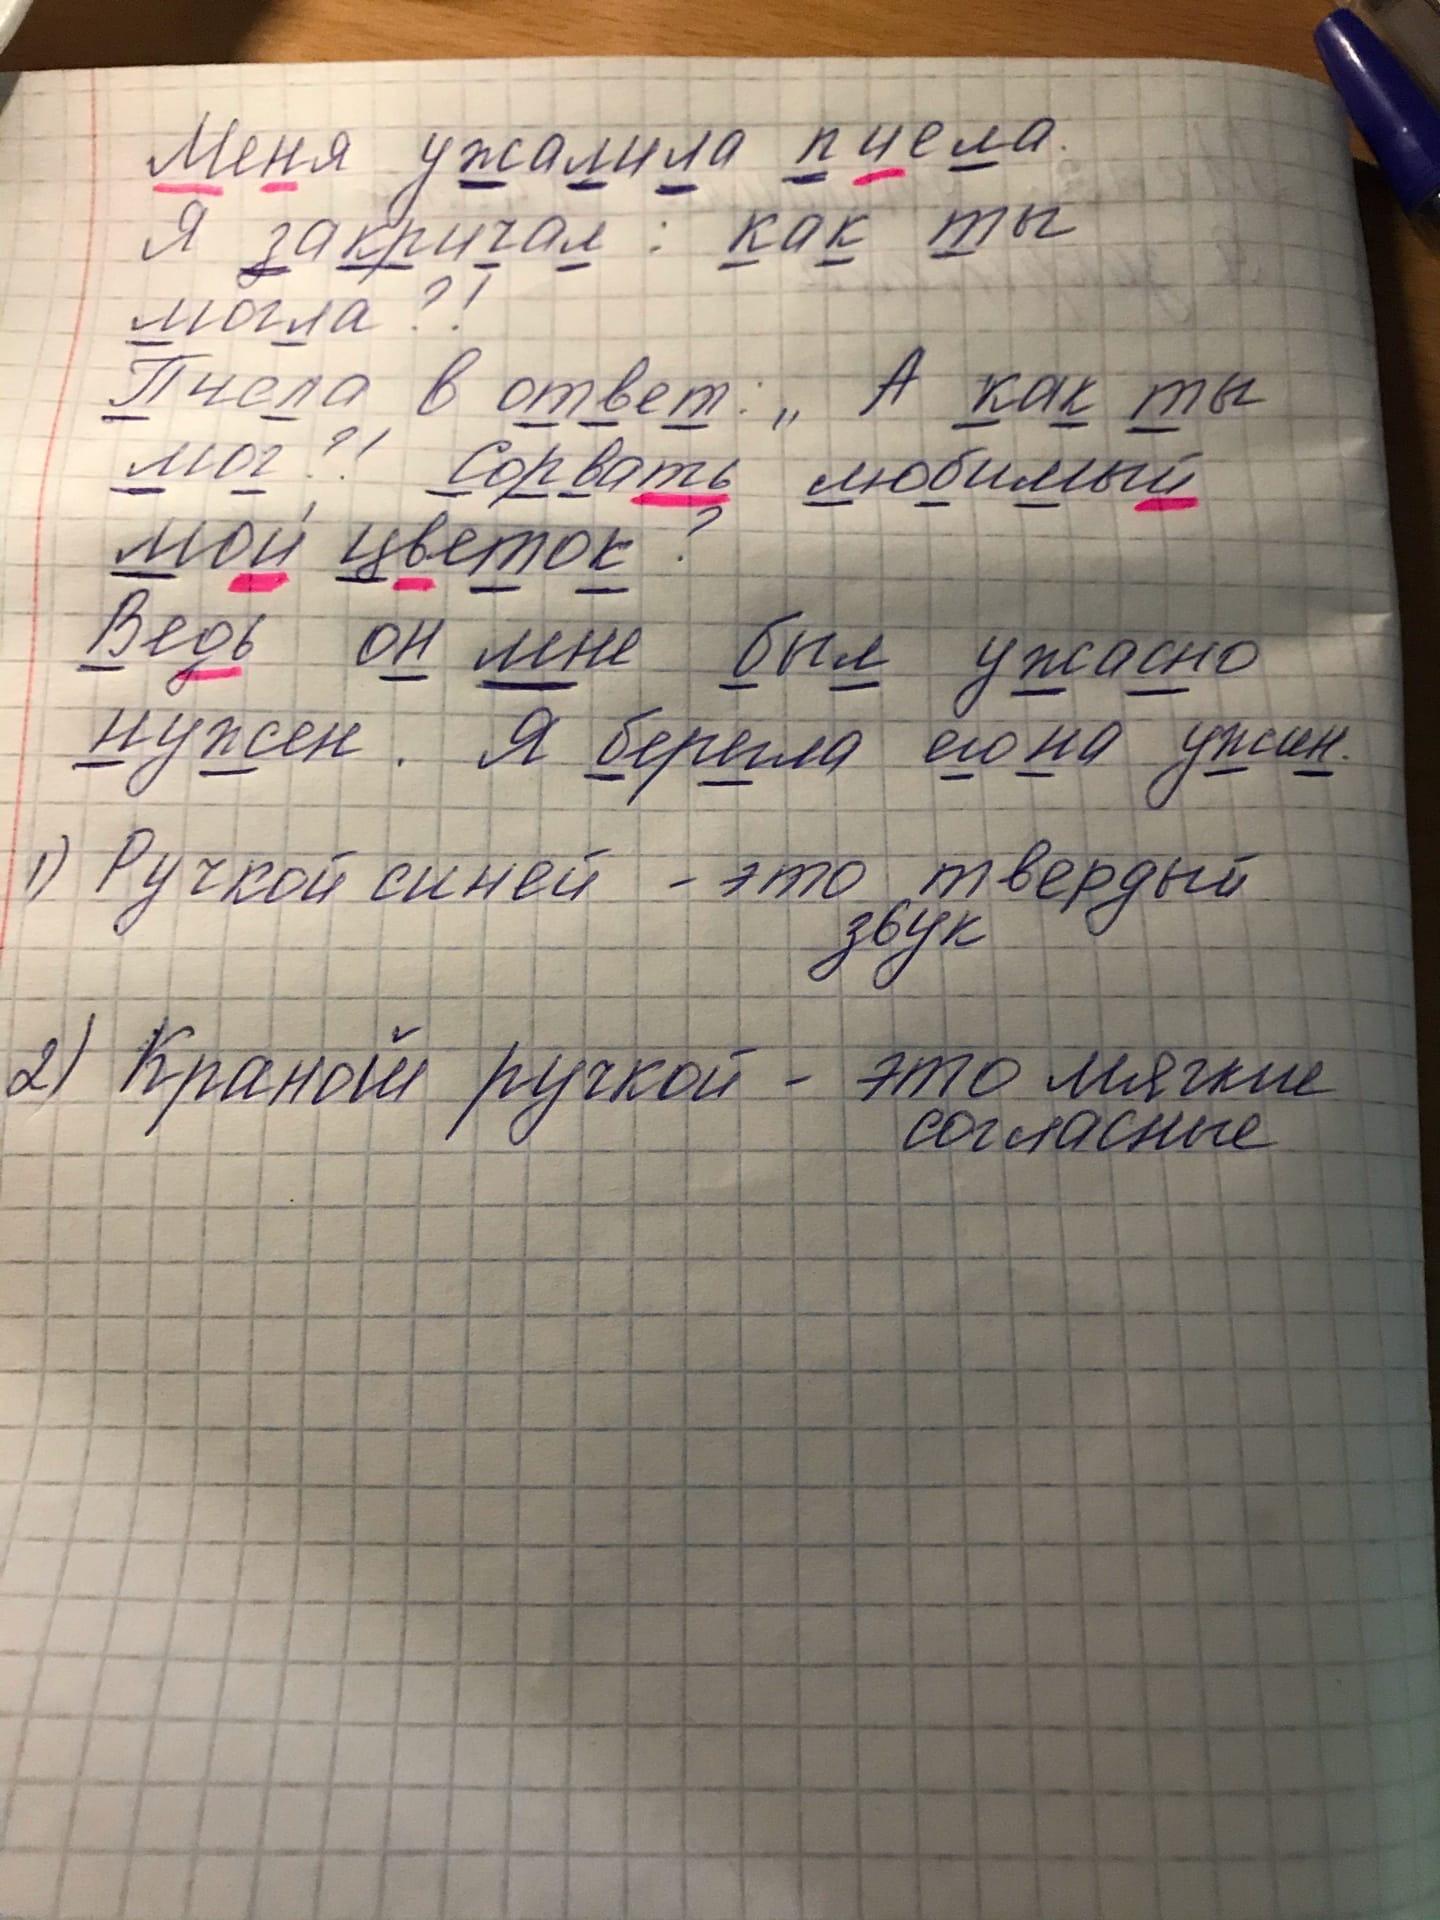 Меня ужалила пчела.
Я закричал: как ты
могла?!
Пчела в ответ: „ А как ты
мог?! Сорвать любимый
мой цветок?
Ведь он мне был ужасно
нужен. Я берегла его на ужин.
1) Ручкой синей - это твердый
звук
2) Краной ручкой - это мягкие
согласные